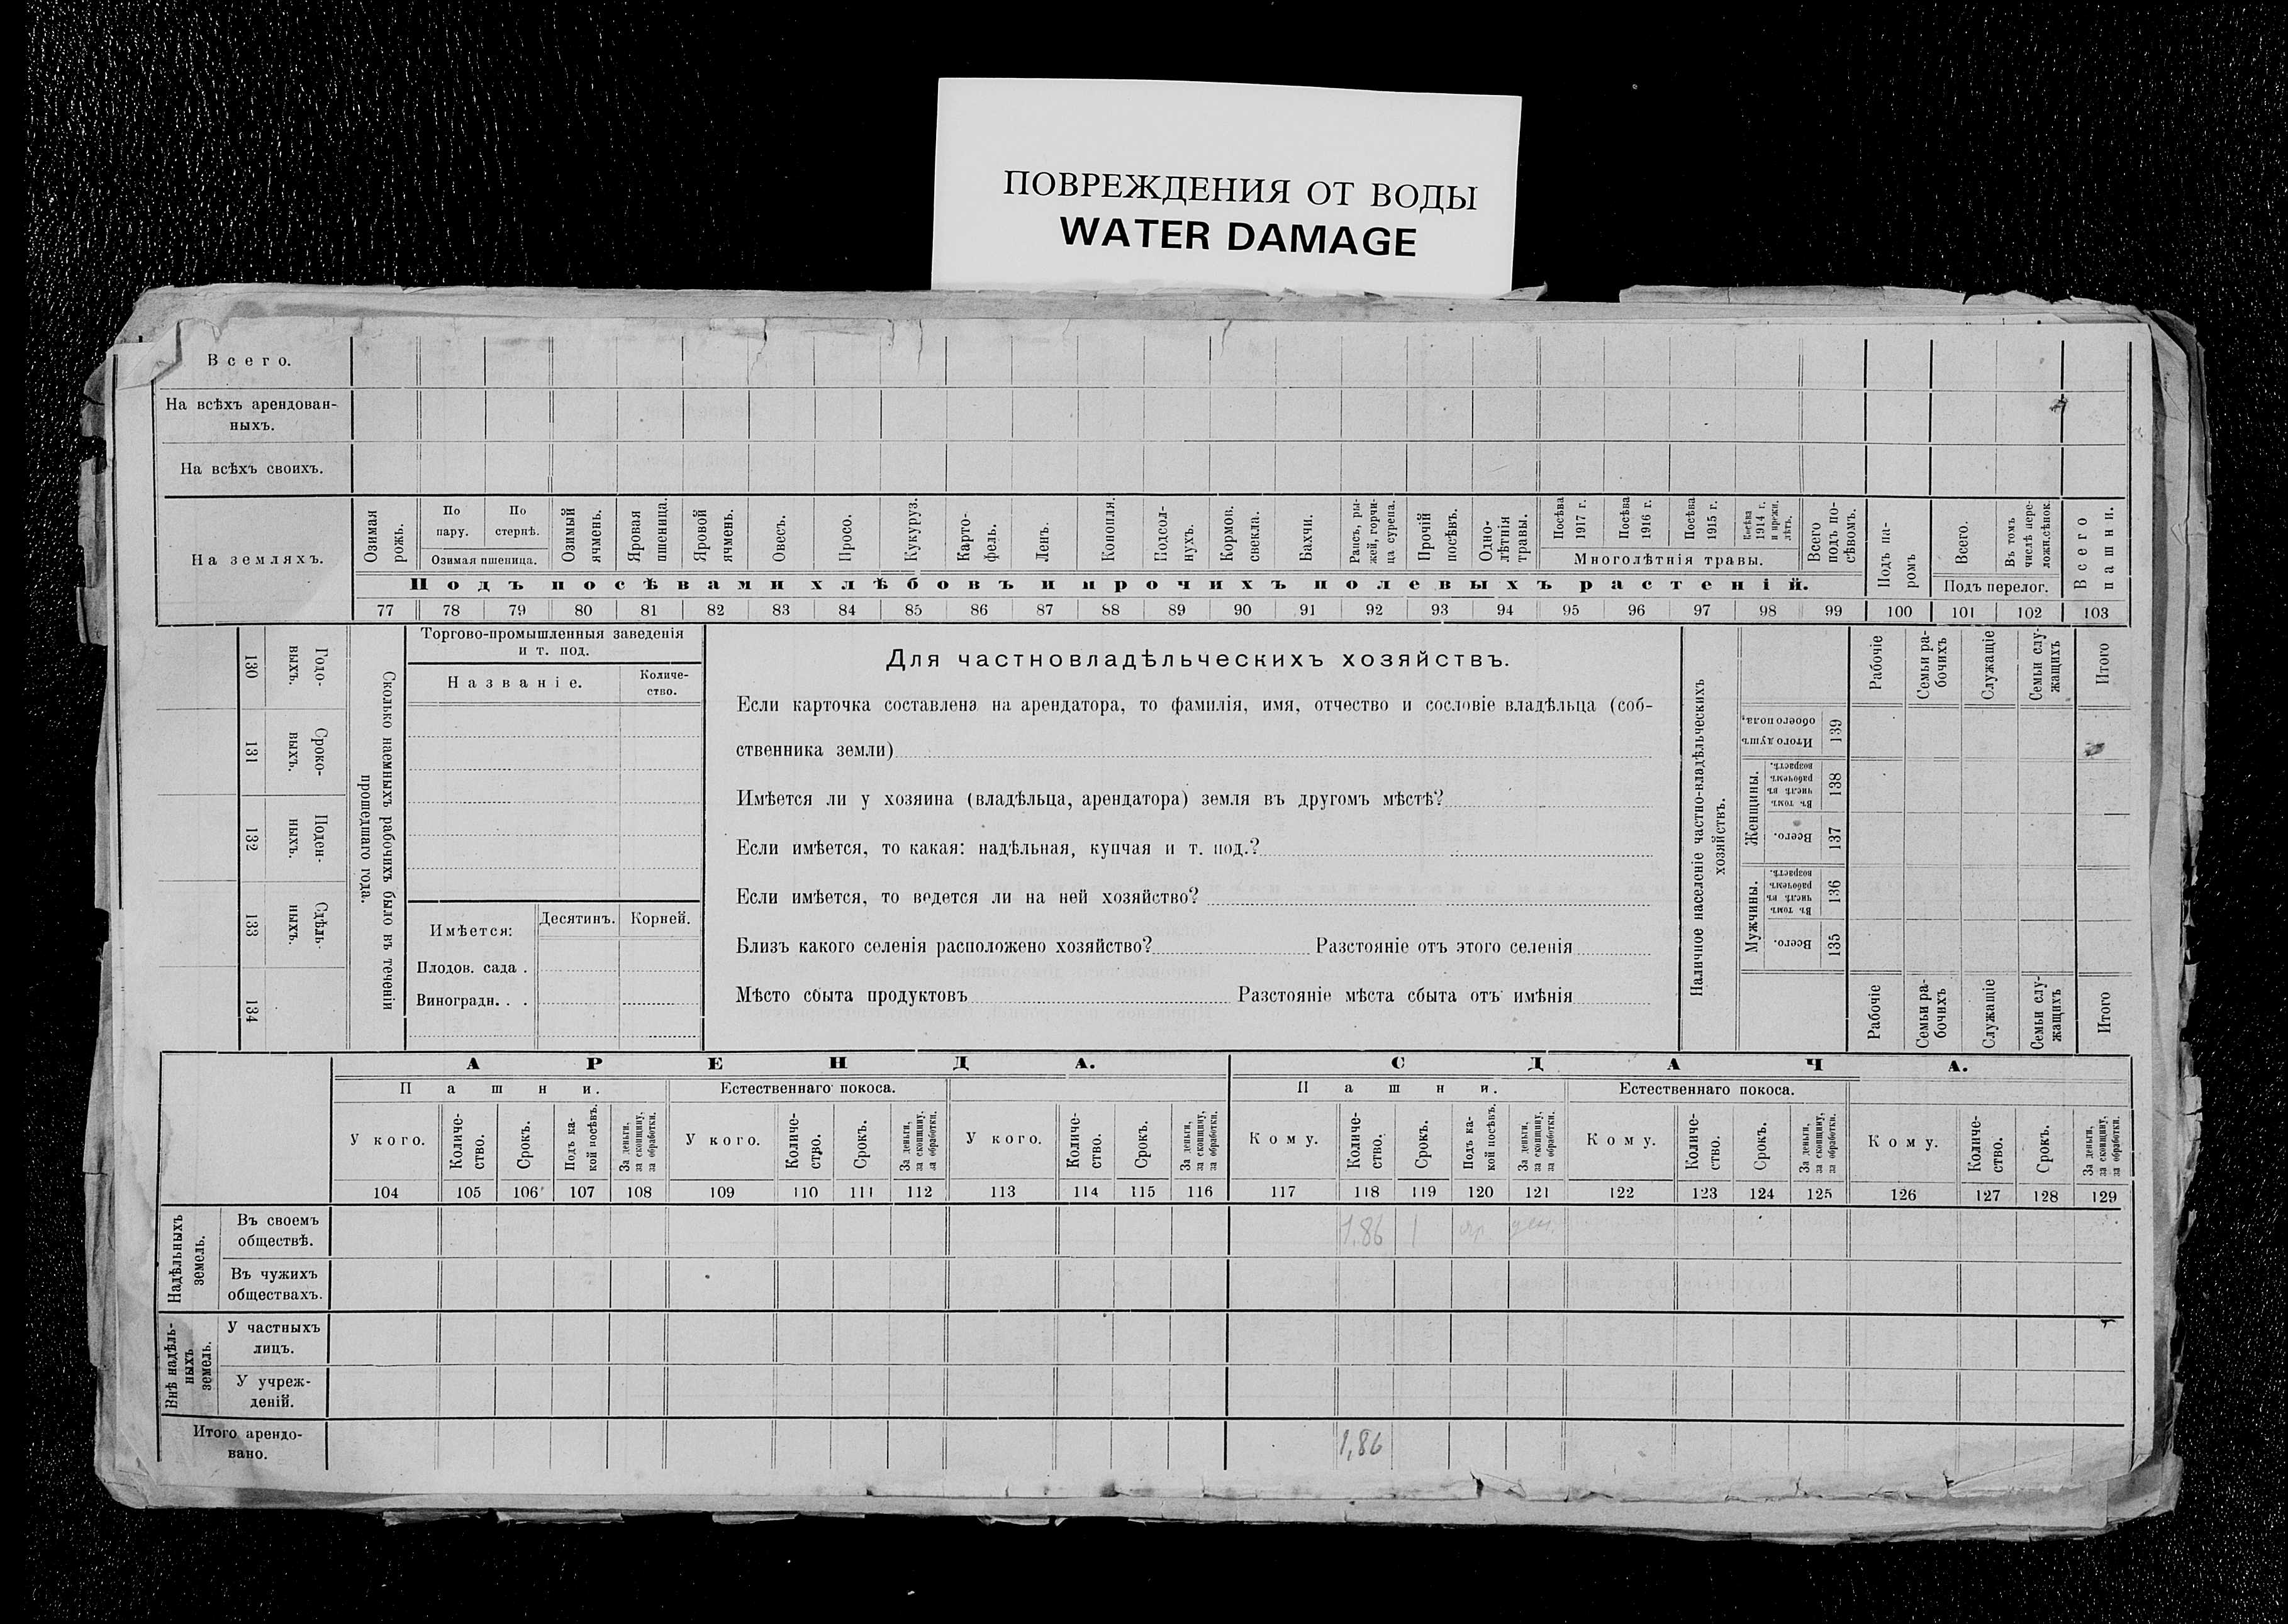 ПОВРЕЖДЕНИЯ ОТ ВОДЫ
WATER DAMAGE
Всего.
На всѣхъ арендован-
ныхъ.
На всѣхъ своихъ.
На земляхъ.
Озимая рожь.
По пару.
По стернѣ.
Озимая пшеница.
Озимый ячмень.
Яровая пшеница.
Яровой ячмень.
Овесъ.
Просо.
Кукуруз.
Карто-
фель.
Ленъ.
Конопля.
Подсол-
нухъ.
Кормов. свекла.
Бахчи.
Рапсъ, ры-
жей, горчи-
ца сурепа.
Прочій посѣвъ.
Одно-
лѣтнія травы.
Посѣва 1917 г.
Посѣва 1916 г.
Посѣва 1915 г.
Посѣва 1914 г. и прежн. лѣтъ.
Многолѣтнія травы.
Всего подъ по-
сѣвомъ.
Подъ па-
ромъ
Всего.
Въ томъ числѣ пере-
ложн.сѣнок.
Подъ перелог.
Всего пашни.
Подъ посѣвами хлѣбовъ и прочихъ полевыхъ растеній.
77 78 79 80 81 82 83 84 85 86 87 88 89 90 91 92 93 94 95 96 97 98 99 100 101 102 103
130 Годо-
выхъ.
131 Сроко-
выхъ.
132 Поден-
ныхъ.
133 Сдѣль-
ныхъ.
134
Сколько наемныхъ рабочихъ было въ теченіи
прошедшаго года.
Торгово-промышленныя заведенія
и т. под.
Названіе.
Количе-
ство.
Имѣется:
Десятинъ.
Корней.
Плодов. сада .
Виноградн. . .
Для частновладѣльческихъ хозяйствъ.
Если карточка составлена на арендатора, то фамилія, имя, отчество и сословіе владѣльца (соб-
ственника земли)
Имѣется ли у хозяина (владѣльца, арендатора) земля въ другомъ мѣстѣ?
Если имѣется, то какая: надѣльная, купчая и т. под.?
Если имѣется, то ведется ли на ней хозяйство?
Близъ какого селенія расположено хозяйство? Разстояніе отъ этого селенія
Мѣсто сбыта продуктовъ Разстояніе мѣста сбыта отъ имѣнія
Наличное населеніе частно-владѣльческихъ
хозяйствъ.
Рабочіе
Семьи ра-
бочихъ
Служащіе
Семьи слу-
жащихъ
Итого
Итого душъ обоего пола,
139
Женщины.
Въ томъ числѣ въ рабочемъ возрастѣ.
138
Всего.
137
Мужчины.
Въ томъ числѣ въ рабочемъ возрастѣ.
136
Всего.
135
Рабочіе
Семьи ра-
бочихъ
Служащіе
Семьи слу-
жащихъ
Итого
АРЕНДА. СДАЧА.
Пашни. Естественнаго покоса. Пашни. Естественнаго покоса.
У кого.
Количе-
ство.
Срокъ.
Подъ ка-
кой посѣвъ.
За деньги, за скопщину, за обработки.
У кого.
Количе-
ство.
Срокъ.
За деньги, за скопщину, за обработки.
У кого.
Количе-
ство.
Срокъ.
За деньги, за скопщину, за обработки.
Кому.
Количе-
ство.
Срокъ.
Подъ ка-
кой посѣвъ.
За деньги, за скопщину, за обработки.
Кому.
Количе-
ство.
Срокъ.
За деньги, за скопщину, за обработки.
Кому.
Количе-
ство.
Срокъ.
За деньги, за скопщину, за обработки.
104 105 106 107 108 109 110 111 112 113 114 115 116 117 118 119 120 121 122 123 124 125 126 127 128 129
Надѣльныхъ
земель.
Въ своемъ
обществѣ.
1.86 1
Въ чужихъ
обществахъ.
Внѣ надѣль-
ныхъ
земель.
У частныхъ
лицъ.
У учреж-
деній.
Итого арендо-
вано.
1,86